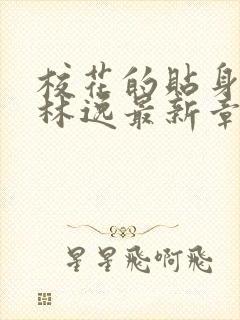 校花的贴身
林逸最新章
星星飛啊飛